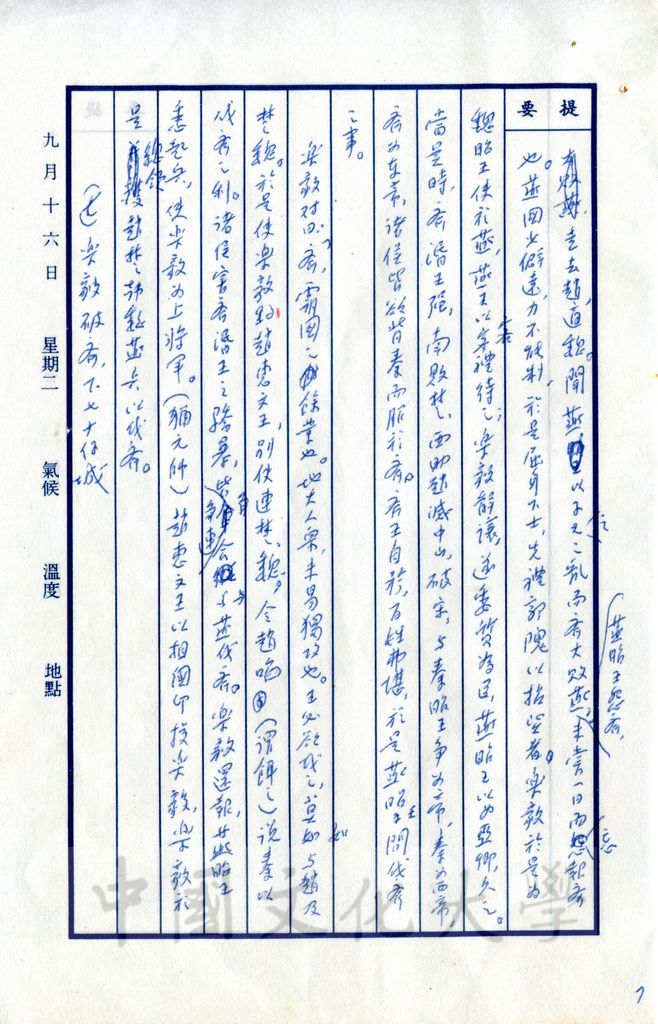 提要
走去趙適魏。聞燕王以子之之亂而齊大敗燕，燕昭王怨齊，未嘗一日而忘報齊
也。燕國小僻遠，力不能制，於是屈身下士，先禮郭隗以招賢者。樂毅於是為
魏昭王使於燕，燕王以客禮待之，樂毅辭讓，遂委質為臣，燕昭王以為亞卿，久之。
當是時，齊湣王強，南敗楚，西助趙滅中山，破宋，與秦昭王爭為帝，秦為西帝，
齊為東帝，諸侯皆欲背秦而服於齊。齊王自矜，百姓弗堪，於是燕昭王問伐齊
之事。
樂毅對曰，齊，霸國之餘業也。地大人眾，未易獨攻也。王必欲伐之，莫如與趙及
楚魏。於是使樂毅約趙惠文王，別使連楚、魏。令趙啗（謂餌之）說秦以
伐齊之利。諸侯害齊湣王之驕暴，皆爭合與燕伐齊。樂毅還報，燕昭王
悉起兵，使樂毅為上將軍。（猶元帥）趙惠文王以相國印授樂毅，樂毅於
是總領趙楚韓魏燕兵以伐齊。
樂毅破齊，下七十餘城
九月十六日 星期二 氣候 溫度 地點
中國文化大學
7